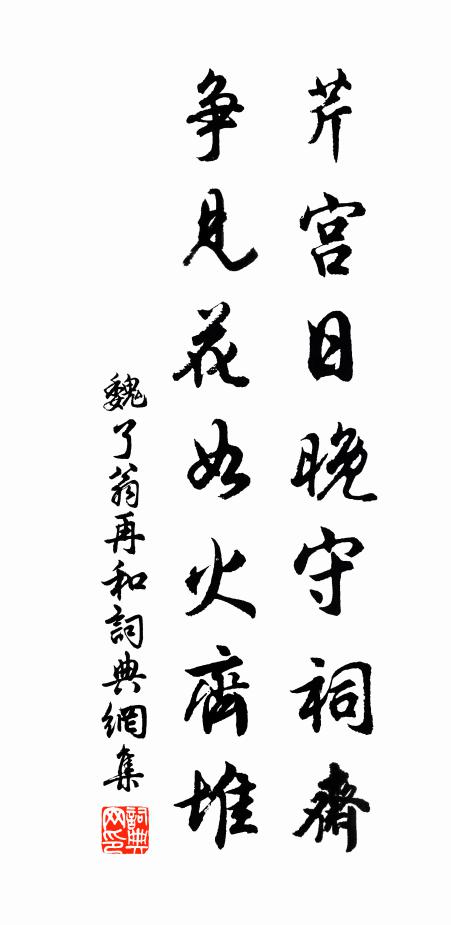 芹宫日晚守祠齋
争見花如火齊堆
魏了翁再和詞典網集
詞典網印